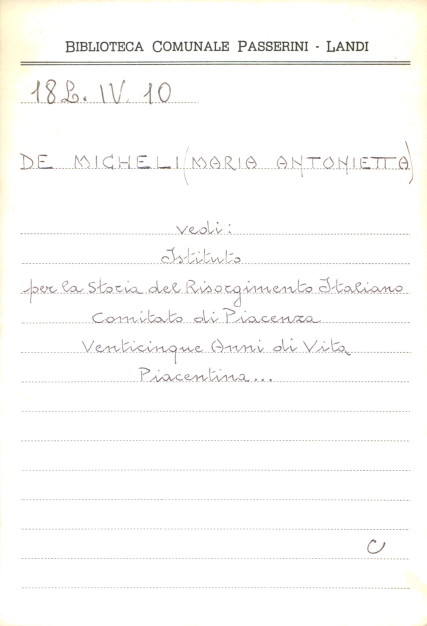 BIBLIOTECA COMUNALE PASSERINI - LANDI
18L. IV. 10
DE MICHELI (MARIA ANTONIETTA)
vedi:
Istituto
per la Storia del Risorgimento Italiano
Comitato di Piacenza
Venticinque Anni di Vita
Piacentina...
C